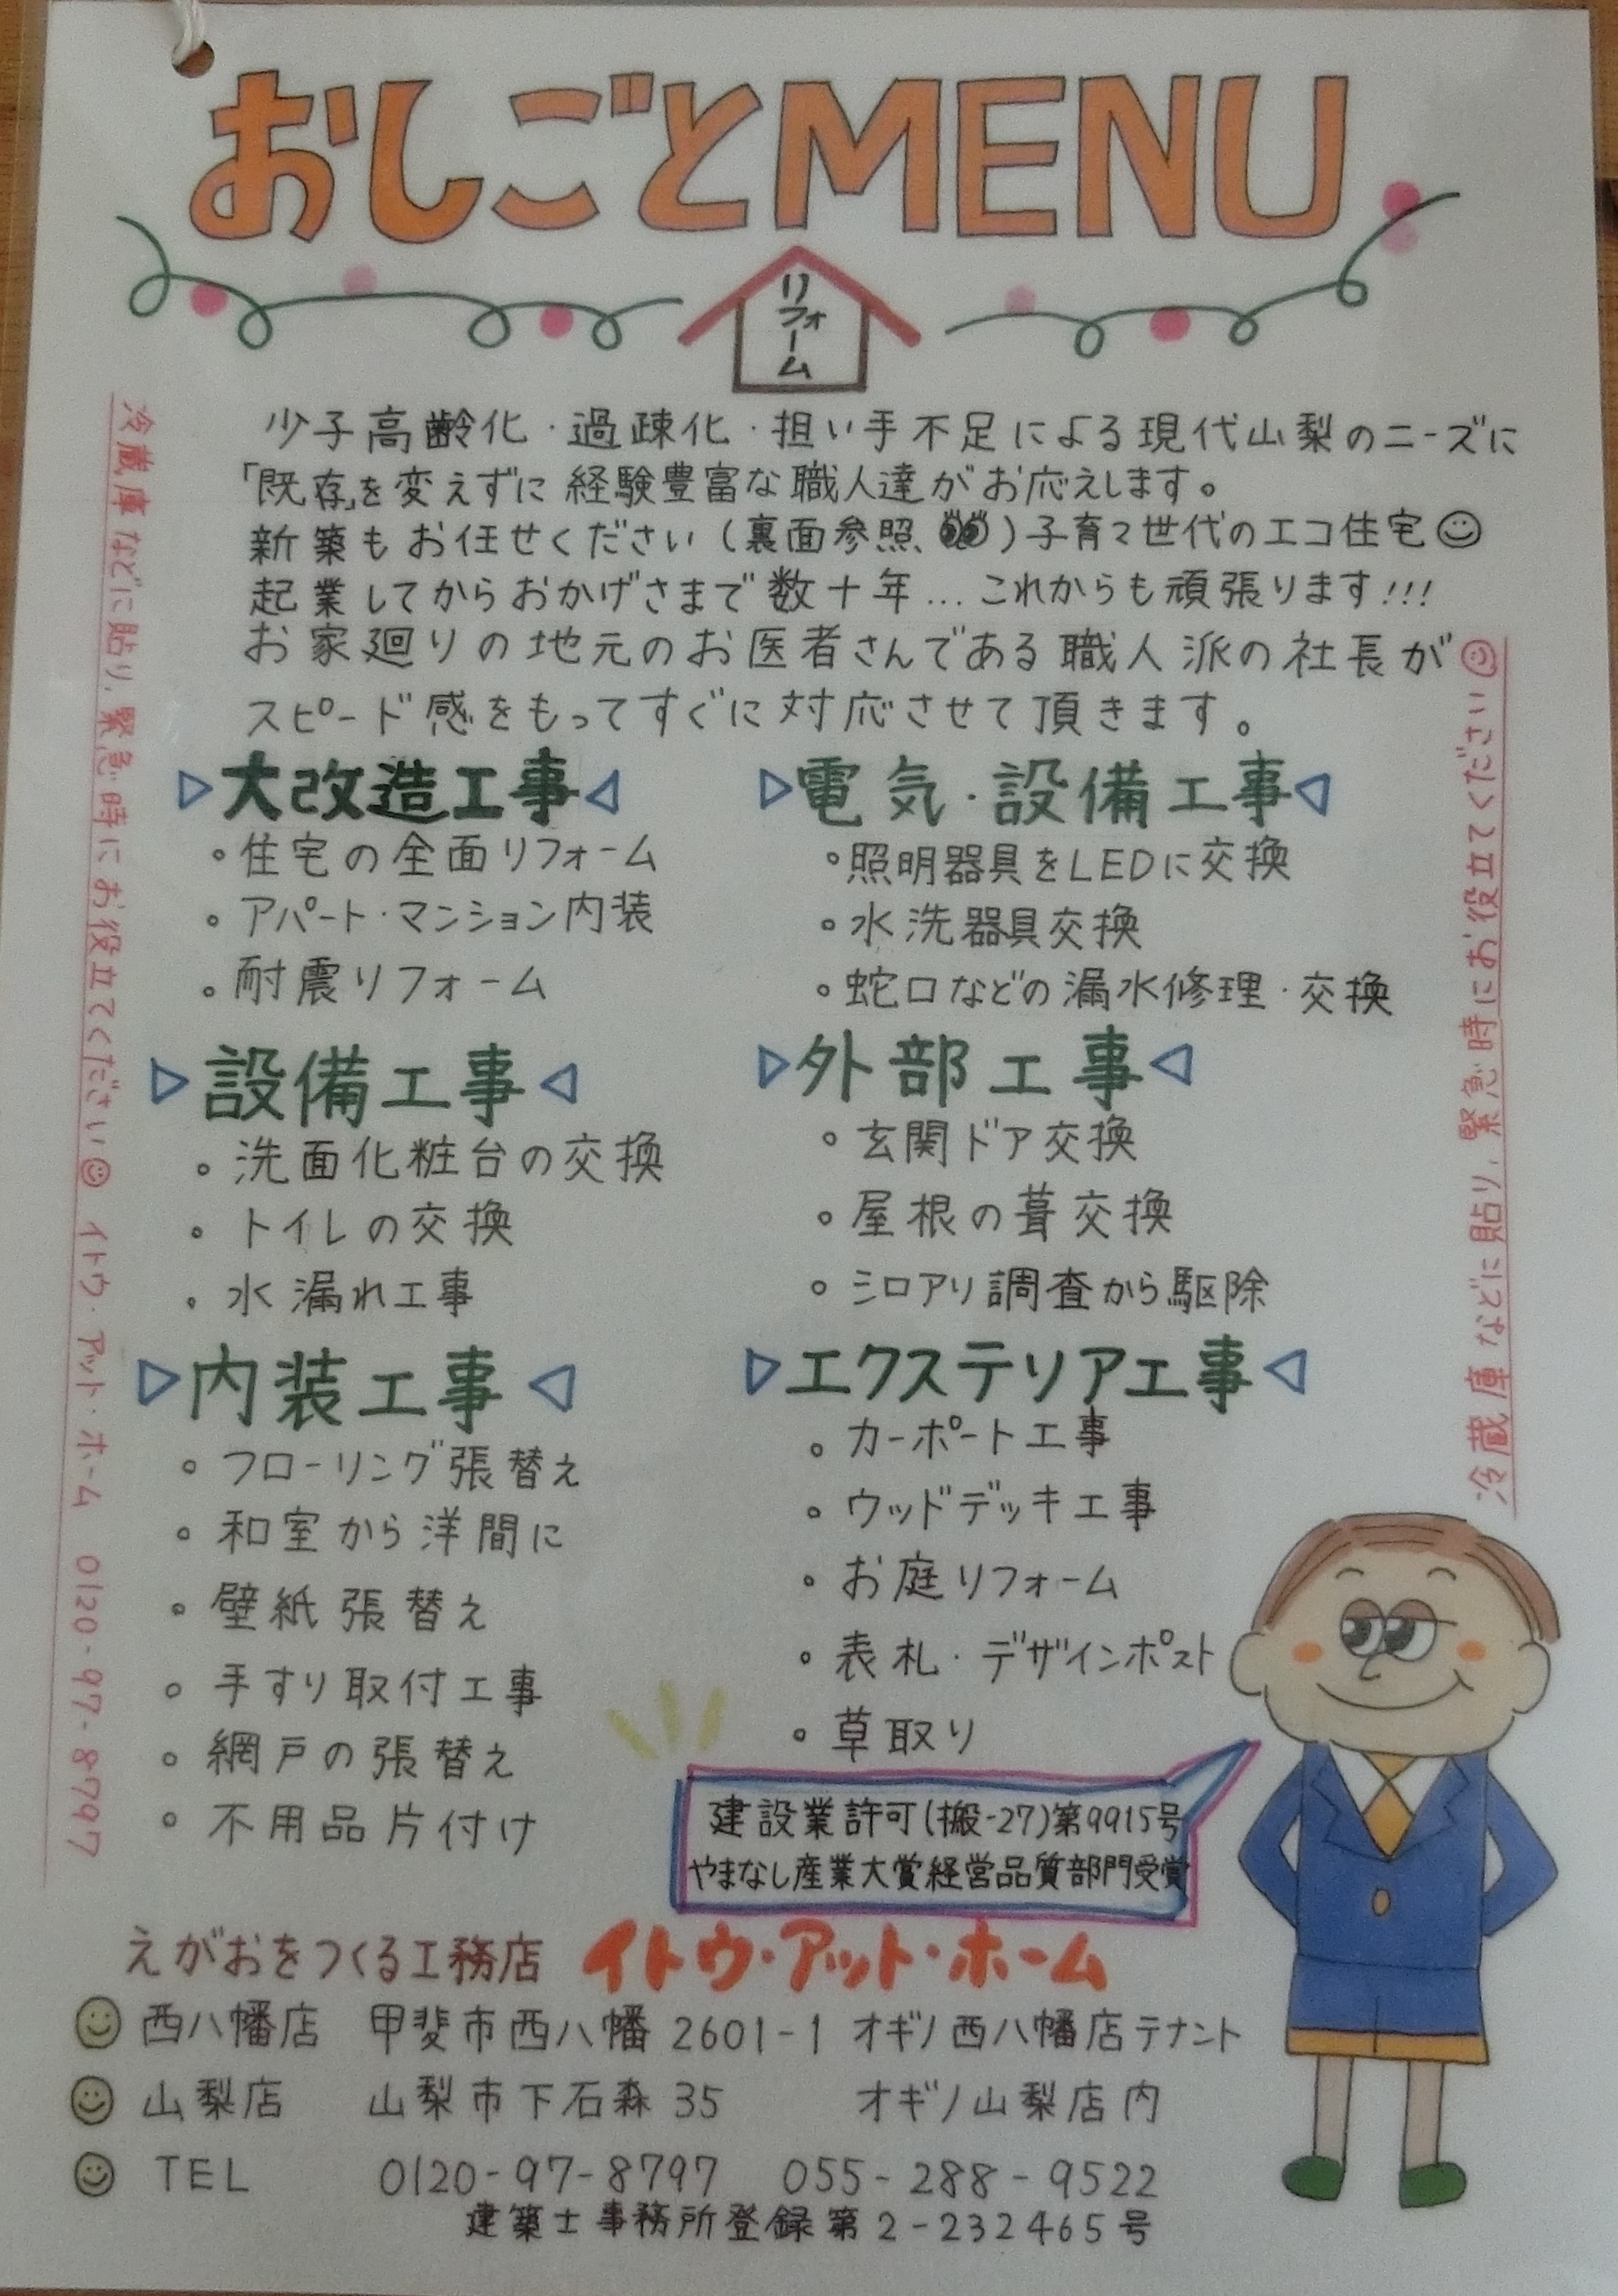 おしごとMENU
リフォーム
少子高齢化・過疎化・担い手不足による現代山梨のニーズに
「既存」を変えずに経験豊富な職人達がお応えします。
新築もお任せください(裏面参照、)子育て世代のエコ住宅
起業してからおかげさまで数十年…これからも頑張ります!!!
お家廻りの地元のお医者さんである職人派の社長が
スピード感をもってすぐに対応させて頂きます。
大改造工事
・住宅の全面リフォーム
・アパート・マンション内装
・耐震リフォーム
設備工事
・洗面化粧台の交換
・トイレの交換
・水漏れ工事
内装工事
・フローリング張替え
・和室から洋間に
・壁紙張替え
・手すり取付工事
・網戸の張替え
・不用品片付け
電気・設備工事
・照明器具をLEDに交換
・水洗器具交換
・蛇口などの漏水修理・交換
外部工事
・玄関ドア交換
・屋根の葺交換
・シロアリ調査から駆除
エクステリア工事
・カーポート工事
・ウッドデッキ工事
・お庭リフォーム
・表札・デザインポスト
・草取り
建設業許可(搬-27)第9915号
やまなし産業大賞経営品質部門受賞
えがおをつくる工務店 イトウ・アット・ホーム
西八幡店 甲斐市西八幡2601-1 オギノ西八幡店テナント
山梨店 山梨市下石森35 オギノ山梨店内
TEL 0120-97-8797 055-288-9522
建築士事務所登録第2-232465号
冷蔵庫などに貼り、緊急時にお役立てください イトウ・アット・ホーム 0120-97-8797
冷蔵庫などに貼り、緊急時にお役立てください